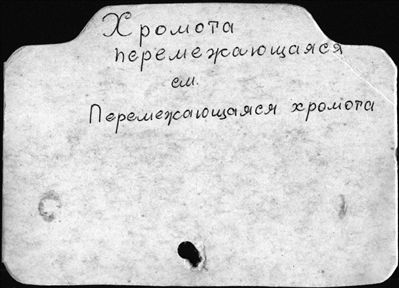 Хромота
перемежающаяся
см.
Перемежающаяся хромота